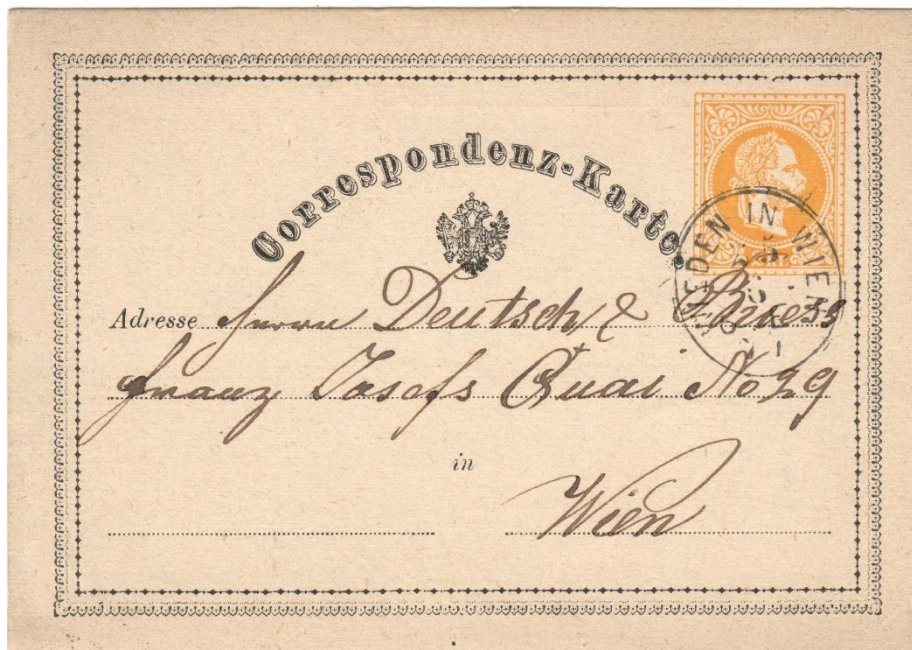 Correspondenz-Karte.
WIEDEN IN WIEN
Adresse Herrn Deutsch &
Franz Josefs Quai No 29
in
Wien